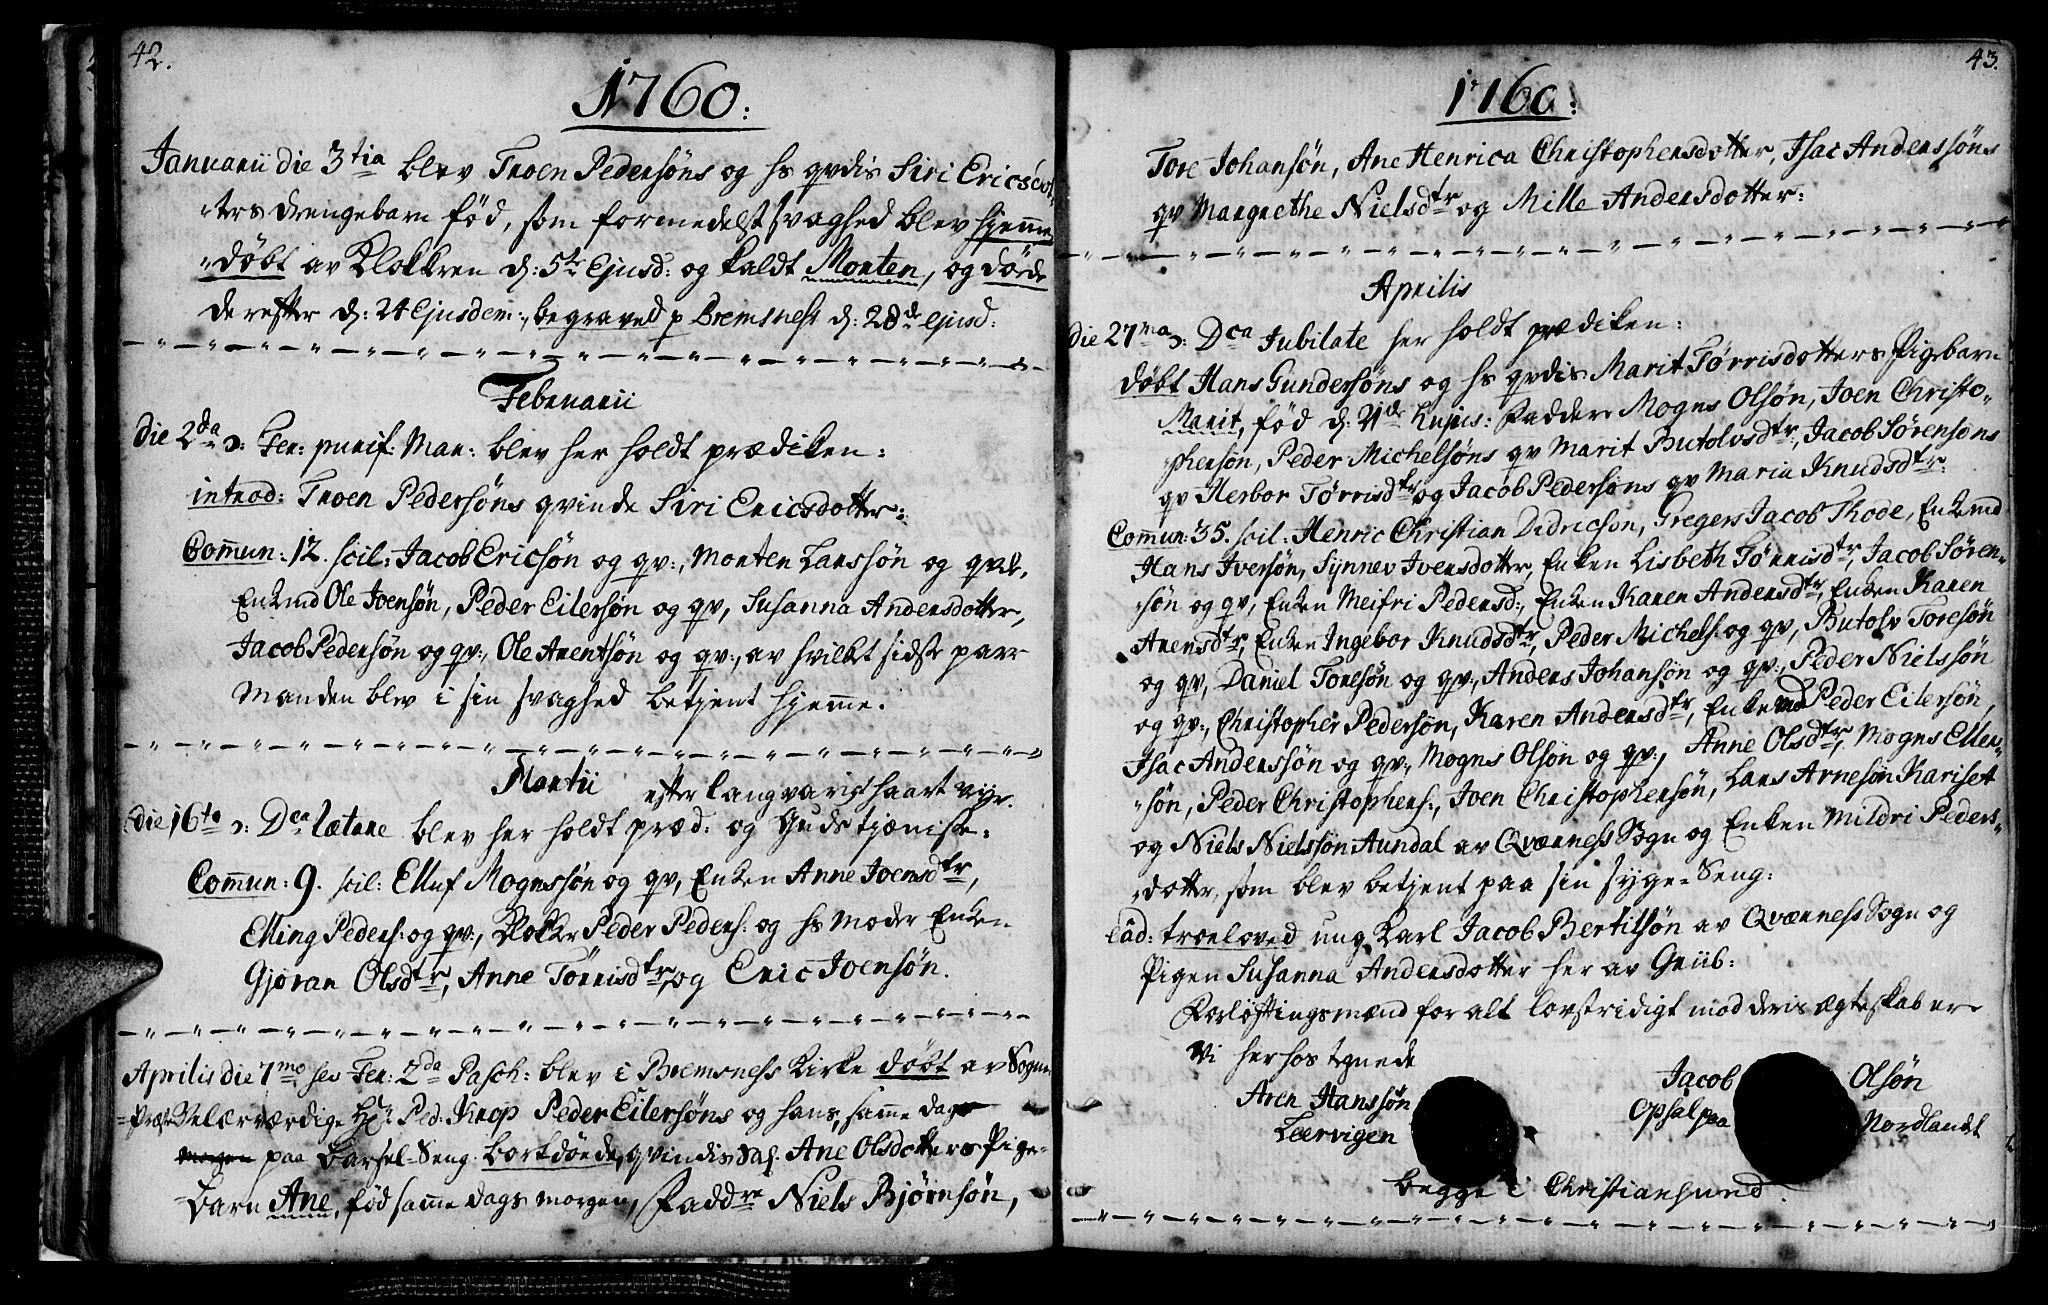 42.
1760:
Januarii die 3tia blev Troen Pedersøns og hs qvdis Siri Ericsdot-
ters drengebarn fød, som formedelst svaghed blev hjemme
døbt av Klokkren d: 5te Ejusd: og kaldt Morten, og døde
derefter d: 24 Ejusdem:, begraved p Bremsness d: 28de Ejusd:
Februarii
die 2da ɔ: Fer: purif: Mar: blev her holdt prædiken:
introd: Troen Pedersøns qvinde Siri Ericsdotter:
Commun: 12. scil: Jacob Ericsøn og qv:, Morten Larssøn og qvde,
Enkmd Ole Joensøn, Peder Eilersøn og qv, Susanna Andersdotter,
Jacob Pedersøn og qv:, Ole Arentsøn og qv:, av hvilkt sidste parr
Manden blev i sin svaghed betjent hjemme.
Martii
efter langvarigt haart vejr.
die 16to ɔ: Dca lætare blev her holdt præd: og Guds tjæniste:
Commun: 9. scil: Elluf Mognssøn og qv, Enken Anne Joensdtr,
Elling Peders: og qv:, Klokker Peder Peders: og hs Moder Enken
Gjøran Olsdtr, Anne Tørrisdtr og Eric Joensøn.
Aprilis die 7mo ses Fer: 2da Pasch: blev i Bremsness Kirke døbt av Sogne-
Præst Velærværdige Hr: Ped: Knop Peder Eilersøns og hans, samme dags
morgen paa Barsel-Seng bortdøde, qvindis Sal. Ane Olsdotters Pige-
barn Ane, fød samme dags morgen, Faddre Niels Bjørnsøn,
43.
1760:
Tore Johansøn, Ane Henrica Christophersdotter, Isac Anderssøns
qv Margrethe Nielsdtr og Mille Andersdotter:
Aprilis
die 27ma ɔ: Dca Jubilate her holdt prædiken:
døbt Hans Gundersøns og hs qvdis Marit Tørrisdotters Pigebarn
Marit, fød d: 21de hujus: Faddere Mogns Olsøn, Joen Christo-
phersøn, Peder Michelsøns qv Marit Butolvsdtr:, Jacob Sørensøns
qv Herbor Tørrisdtr og Jacob Pedersøns qv Maria Knudsdtr:
Commun: 35. scil: Henric Christian Didricson, Gregers Jacob Thode, Enkmd
Hans Iversøn, Synnev Iversdotter, Enken Lisbeth Tørrisdtr, Jacob Søren-
søn og qv, Enken Meifri Pedersd:, Enken Karen Andersdtr, Enken Karen
Arensdtr, Enken Ingebor Knudsdtr, Peder Michels: og qv, Butolv Toresøn
og qv, Daniel Toresøn og qv., Anders Johansøn og qv:, Peder Nielssøn
og qv:, Christopher Pedersøn, Karen Andersdtr, Enkemd Peder Eilersøn,
Isac Anderssøn og qv:, Mogns Olsøn og qv:, Anne Olsdtr, Mogns Ellev-
søn, Peder Christophers:, Joen Christophersøn, Lars Arnesøn Kariset
og Niels Nielssøn Aundal av Qværness Sogn og Enken Mildri Peders-
dotter, som blev betjent paa sin syge-Seng:
Ead: troeloved ung Karl Jacob Bertilsøn av Qværness Sogn og
Pigen Susanna Andersdotter her av Griib:
Forløftingsmænd for alt lovstridigt mod deris ægteskab er
Vi herhos tegnede
Aren Hanssøn
Leervigen
Jacob Olsøn
Opsal paa Nordlandt
Begge i Christiansund.